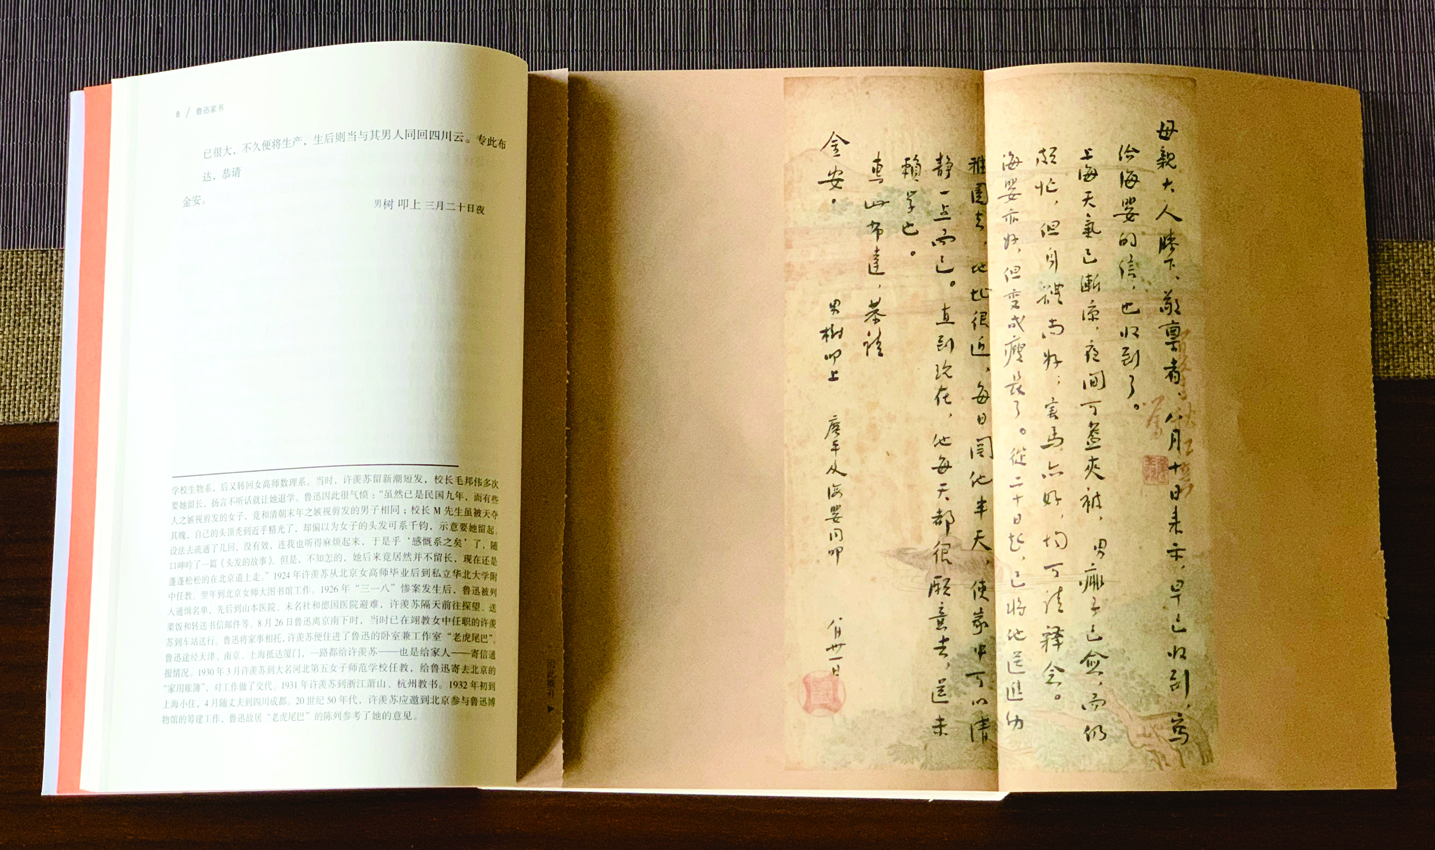 8 / 鲁迅家书
已很大，不久便将生产，生后则当与其男人同回四川云。专此布
达，恭请
金安。
男树 叩上 三月二十日夜
学校生物系，后又转回女高师数理系。当时，许羡苏留新潮短发，校长毛邦伟多次
要她留长，扬言不听话就让她退学。鲁迅因此很气愤：“虽然已是民国九年，而有些
人之嫉视剪发的女子，竟和清朝末年之嫉视剪发的男子相同；校长M先生虽被天夺
其魄，自己的头顶秃到近乎精光了，却偏以为女子的头发可系千钧，示意要她留起。
设法去疏通了几回，没有效，连我也听得麻烦起来，于是乎‘感慨系之矣’了，随
口呻吟了一篇《头发的故事》。但是，不知怎的，她后来竟居然并不留长，现在还是
蓬蓬松松的在北京道上走。”1924年许羡苏从北京女高师毕业后到私立华北大学附
中任教，翌年到北京女师大图书馆工作。1926年“三一八”惨案发生后，鲁迅被列
入通缉名单，先后到山本医院、未名社和德国医院避难，许羡苏隔天前往探望，送
菜饭和转送书信邮件等。8月26日鲁迅离京南下时，当时已在翊教女中任职的许羡
苏到车站送行。鲁迅将家事相托，许羡苏便住进了鲁迅的卧室兼工作室“老虎尾巴”。
鲁迅途经天津、南京、上海抵达厦门，一路都给许羡苏——也是给家人——寄信通
报情况。1930年3月许羡苏到大名河北第五女子师范学校任教，给鲁迅寄去北京的
“家用账簿”，对工作做了交代。1931年许羡苏到浙江萧山、杭州教书。1932年初到
上海小住，4月随丈夫到四川成都。20世纪50年代，许羡苏应邀到北京参与鲁迅博
物馆的筹建工作，鲁迅故居“老虎尾巴”的陈列参考了她的意见。
母親大人膝下，敬禀者，八月十日来示，早已收到，寫
给海嬰的信，也收到了。
上海天氣已漸涼，夜间可蓋夹被，男痱子已愈，而仍
頗忙，但身體尚好；害馬亦好，均可请釋念。
海嬰亦好，但变成瘦長了。從二十日起，已将他送進幼
稚園去，地址很近，每日関他半天，使家中可以清
静一点而已。直到现在，他每天都很願意去，還未
賴学也。
專此布達，恭請
金安。
男樹叩上 廣平及海嬰同叩 八月卅一日